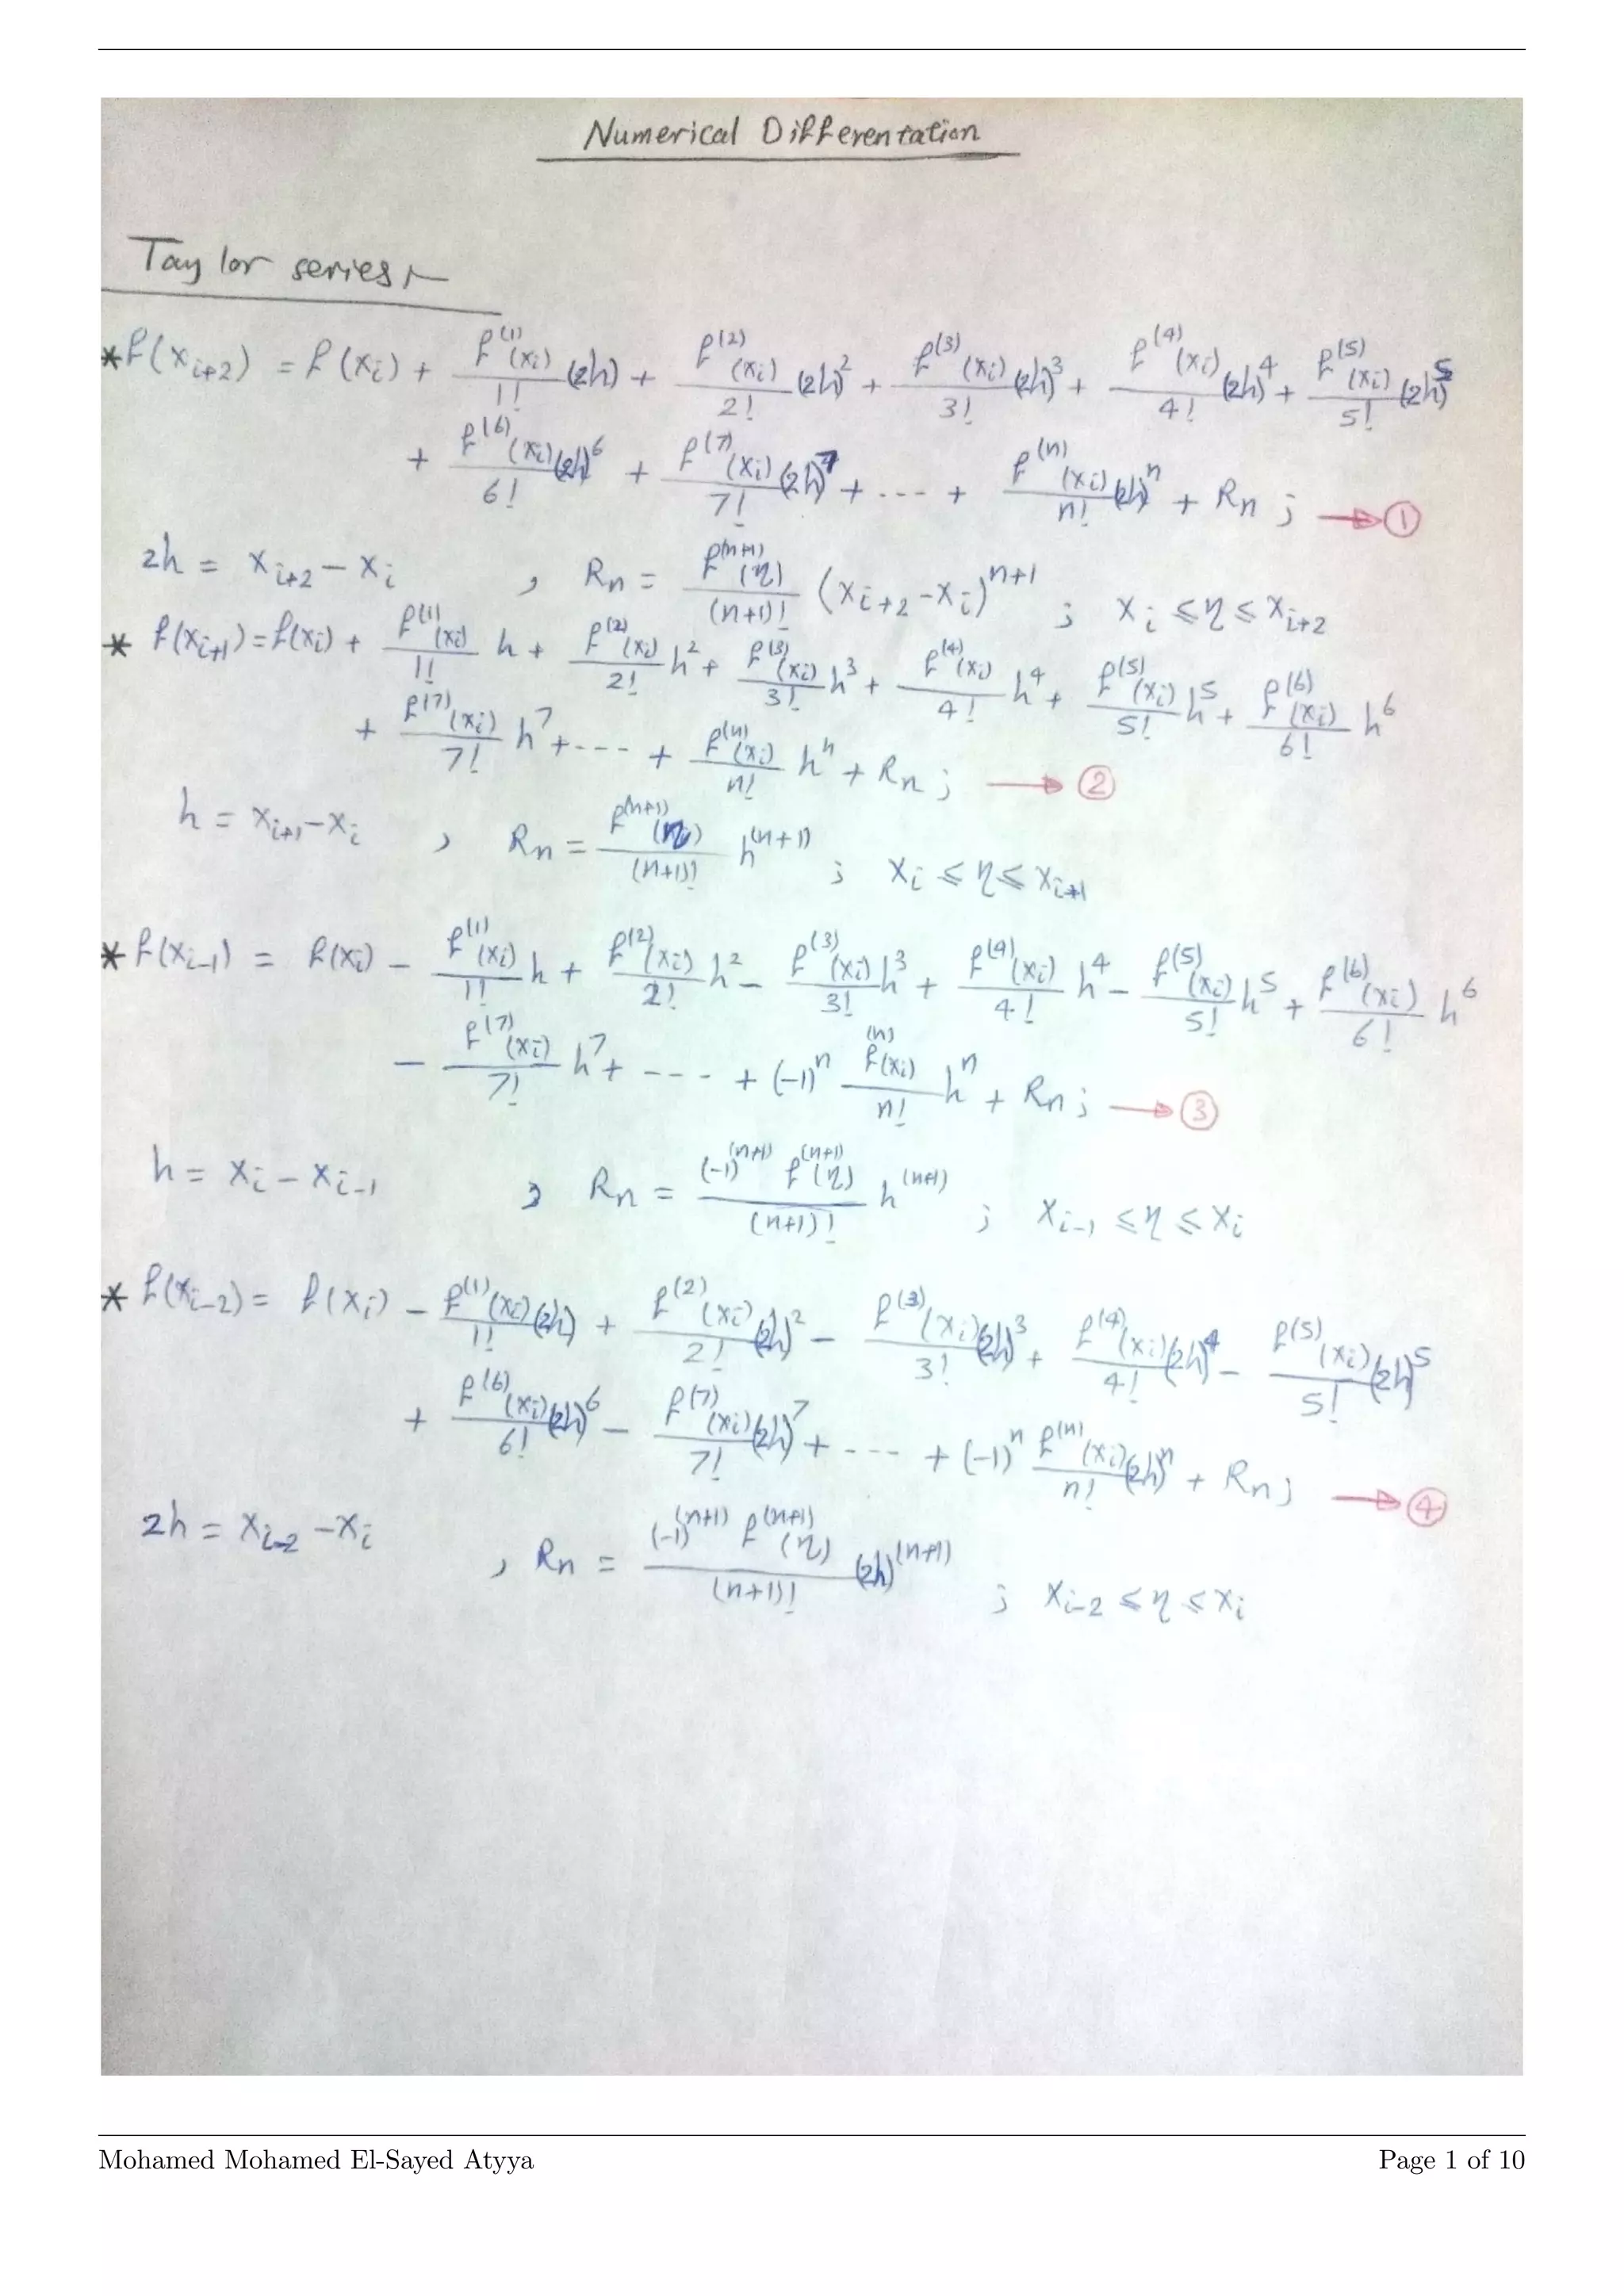 Numerical Differentation
Taylor series :-
* f(x_{i+2}) = f(x_i) + f^{(1)}(x_i)/1! (2h) + f^{(2)}(x_i)/2! (2h)^2 + f^{(3)}(x_i)/3! (2h)^3 + f^{(4)}(x_i)/4! (2h)^4 + f^{(5)}(x_i)/5! (2h)^5
+ f^{(6)}(x_i)/6! (2h)^6 + f^{(7)}(x_i)/7! (2h)^7 + --- + f^{(n)}(x_i)/n! (2h)^n + R_n ; → ①
2h = x_{i+2} - x_i , R_n = f^{(n+1)}(η)/(n+1)! (x_{i+2} - x_i)^{n+1} ; x_i ≤ η ≤ x_{i+2}
* f(x_{i+1}) = f(x_i) + f^{(1)}(x_i)/1! h + f^{(2)}(x_i)/2! h^2 + f^{(3)}(x_i)/3! h^3 + f^{(4)}(x_i)/4! h^4 + f^{(5)}(x_i)/5! h^5 + f^{(6)}(x_i)/6! h^6
+ f^{(7)}(x_i)/7! h^7 + --- + f^{(n)}(x_i)/n! h^n + R_n ; → ②
h = x_{i+1} - x_i , R_n = f^{(n+1)}(η)/(n+1)! h^{(n+1)} ; x_i ≤ η ≤ x_{i+1}
* f(x_{i-1}) = f(x_i) - f^{(1)}(x_i)/1! h + f^{(2)}(x_i)/2! h^2 - f^{(3)}(x_i)/3! h^3 + f^{(4)}(x_i)/4! h^4 - f^{(5)}(x_i)/5! h^5 + f^{(6)}(x_i)/6! h^6
- f^{(7)}(x_i)/7! h^7 + --- + (-1)^n f^{(n)}(x_i)/n! h^n + R_n ; → ③
h = x_i - x_{i-1} , R_n = (-1)^{(n+1)} f^{(n+1)}(η)/(n+1)! h^{(n+1)} ; x_{i-1} ≤ η ≤ x_i
* f(x_{i-2}) = f(x_i) - f^{(1)}(x_i)/1! (2h) + f^{(2)}(x_i)/2! (2h)^2 - f^{(3)}(x_i)/3! (2h)^3 + f^{(4)}(x_i)/4! (2h)^4 - f^{(5)}(x_i)/5! (2h)^5
+ f^{(6)}(x_i)/6! (2h)^6 - f^{(7)}(x_i)/7! (2h)^7 + --- + (-1)^n f^{(n)}(x_i)/n! (2h)^n + R_n ; → ④
2h = x_{i-2} - x_i , R_n = (-1)^{(n+1)} f^{(n+1)}(η)/(n+1)! (2h)^{(n+1)} ; x_{i-2} ≤ η ≤ x_i
Mohamed Mohamed El-Sayed Atyya Page 1 of 10